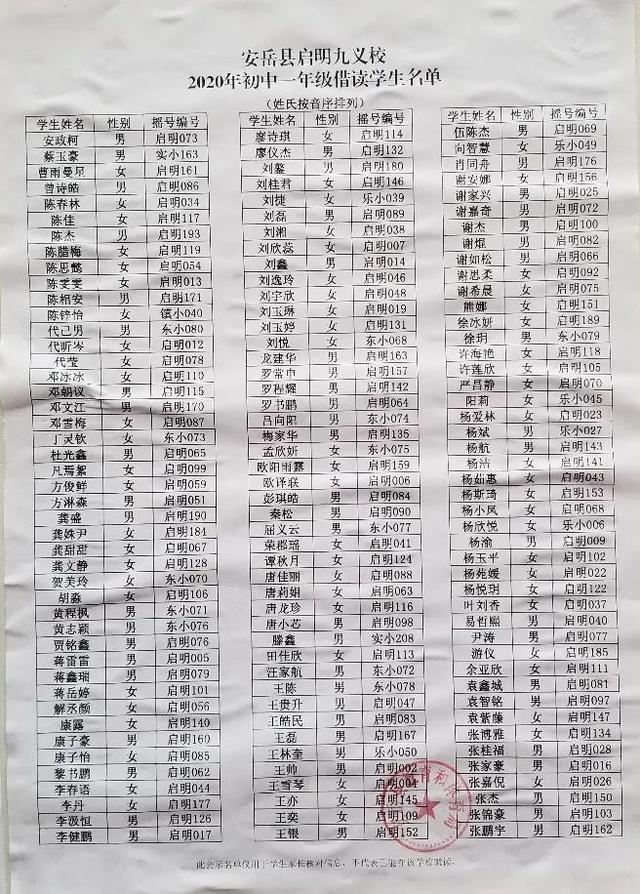 安岳县启明九义校
2020年初中一年级借读学生名单
（姓氏按音序排列）
学生姓名 性别 摇号编号
安政柯 男 启明073
蔡玉豪 男 实小163
曹雨曼星 女 启明161
曾诗皓 男 启明086
陈春林 女 启明034
陈佳 女 启明117
陈杰 男 启明193
陈腊梅 女 启明119
陈思懿 女 启明054
陈雯雯 女 启明013
陈相安 男 启明171
陈锌怡 女 镇小040
代己男 男 东小080
代昕岑 女 启明012
代莹 女 启明078
邓冰冰 女 启明110
邓朝议 男 启明115
邓文江 男 启明170
邓雪梅 女 启明087
丁灵钦 女 东小073
杜光鑫 男 启明065
凡焉絮 女 启明099
方俊鲜 女 启明059
方淋森 男 启明051
龚盛 男 启明190
龚姝尹 女 启明184
龚甜甜 女 启明067
龚文静 女 启明128
贺芙玲 女 东小070
胡淼 女 启明106
黄程枫 男 东小071
黄志颖 男 东小076
贾铭鑫 男 启明076
蒋雷雷 男 启明005
蒋鑫瑞 男 启明079
蒋岳婷 女 启明101
解丞颜 女 启明056
康露 女 启明140
康子豪 男 启明160
康子怡 女 启明085
黎书鹏 男 启明062
李春语 女 启明044
李丹 女 启明177
李汲恒 男 启明126
李健鹏 男 启明017
学生姓名 性别 摇号编号
廖诗琪 女 启明114
廖仪杰 男 启明132
刘鏊 男 启明180
刘桂君 女 启明146
刘婕 女 乐小039
刘磊 男 启明089
刘湘 女 启明038
刘欣蕊 女 启明007
刘鑫 男 启明014
刘逸玲 女 启明046
刘宇欣 女 启明048
刘玉琳 女 启明019
刘玉婷 女 启明131
刘悦 女 东小068
龙建华 男 启明163
罗常巾 男 启明157
罗程耀 男 启明142
罗书鹏 男 启明064
吕向阳 男 东小074
梅家华 男 启明135
孟欣妍 女 东小075
欧阳雨露 女 启明159
欧译联 女 启明006
彭琪皓 男 启明084
秦松 男 启明090
屈义云 男 东小077
荣郡瑶 女 启明041
谭秋月 女 启明124
唐佳丽 女 启明088
唐莉娟 女 启明063
唐龙珍 女 启明116
唐小芯 男 启明098
滕鑫 男 实小208
田佳欣 女 启明113
汪家航 男 东小072
王陈 男 东小078
王贵升 男 启明047
王皓民 男 启明083
王磊 男 启明167
王林奎 男 乐小050
王帅 男 启明002
王雪琴 女 启明004
王亦 女 启明145
王奕 女 启明109
王银 男 启明152
学生姓名 性别 摇号编号
伍陈杰 男 启明069
向智慧 女 乐小049
肖同舟 男 启明176
谢安娜 女 启明156
谢家兴 男 启明025
谢嘉奇 男 启明072
谢杰 男 启明100
谢焜 男 启明082
谢如松 男 启明066
谢思柔 女 启明092
谢希晨 女 启明075
熊娜 女 启明151
徐冰妍 女 启明189
徐玥 男 东小079
许海艳 女 启明118
许莲欣 女 启明105
严昌静 女 启明070
阳莉 女 乐小045
杨爱林 女 启明023
杨斌 男 乐小027
杨航 男 启明143
杨洁 女 启明141
杨茹惠 女 启明043
杨斯琦 女 启明153
杨小凤 女 启明068
杨欣悦 女 乐小006
杨渝 男 启明009
杨玉平 女 启明102
杨苑媛 女 启明022
杨悦玥 女 启明122
叶刘香 女 启明037
易哲熙 男 启明040
尹涛 男 启明077
游仪 女 启明185
余亚欣 女 启明111
袁鑫城 男 启明081
袁智铭 男 启明097
袁紫藤 女 启明147
张博雅 女 启明134
张桂福 男 启明028
张家豪 男 启明016
张嘉倪 女 启明026
张杰 男 启明150
张锦豪 男 启明103
张鹏宇 男 启明162
此公示名单仅用于学生家长核对信息，不代表已能在该学校就读。